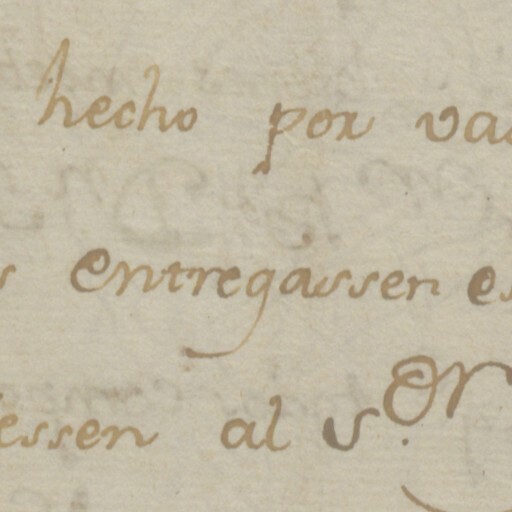 hecho por va
s entregassen es
essen al Sor